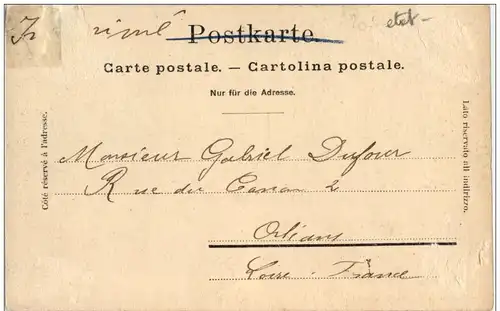 Postkarte.
Carte postale. — Cartolina postale.
Nur für die Adresse.
Côté réservé à l'adresse.
Lato riservato all indirizzo.
Monsieur Gabriel Dufour
Rue du Canon 2
Orléans
Loire - France